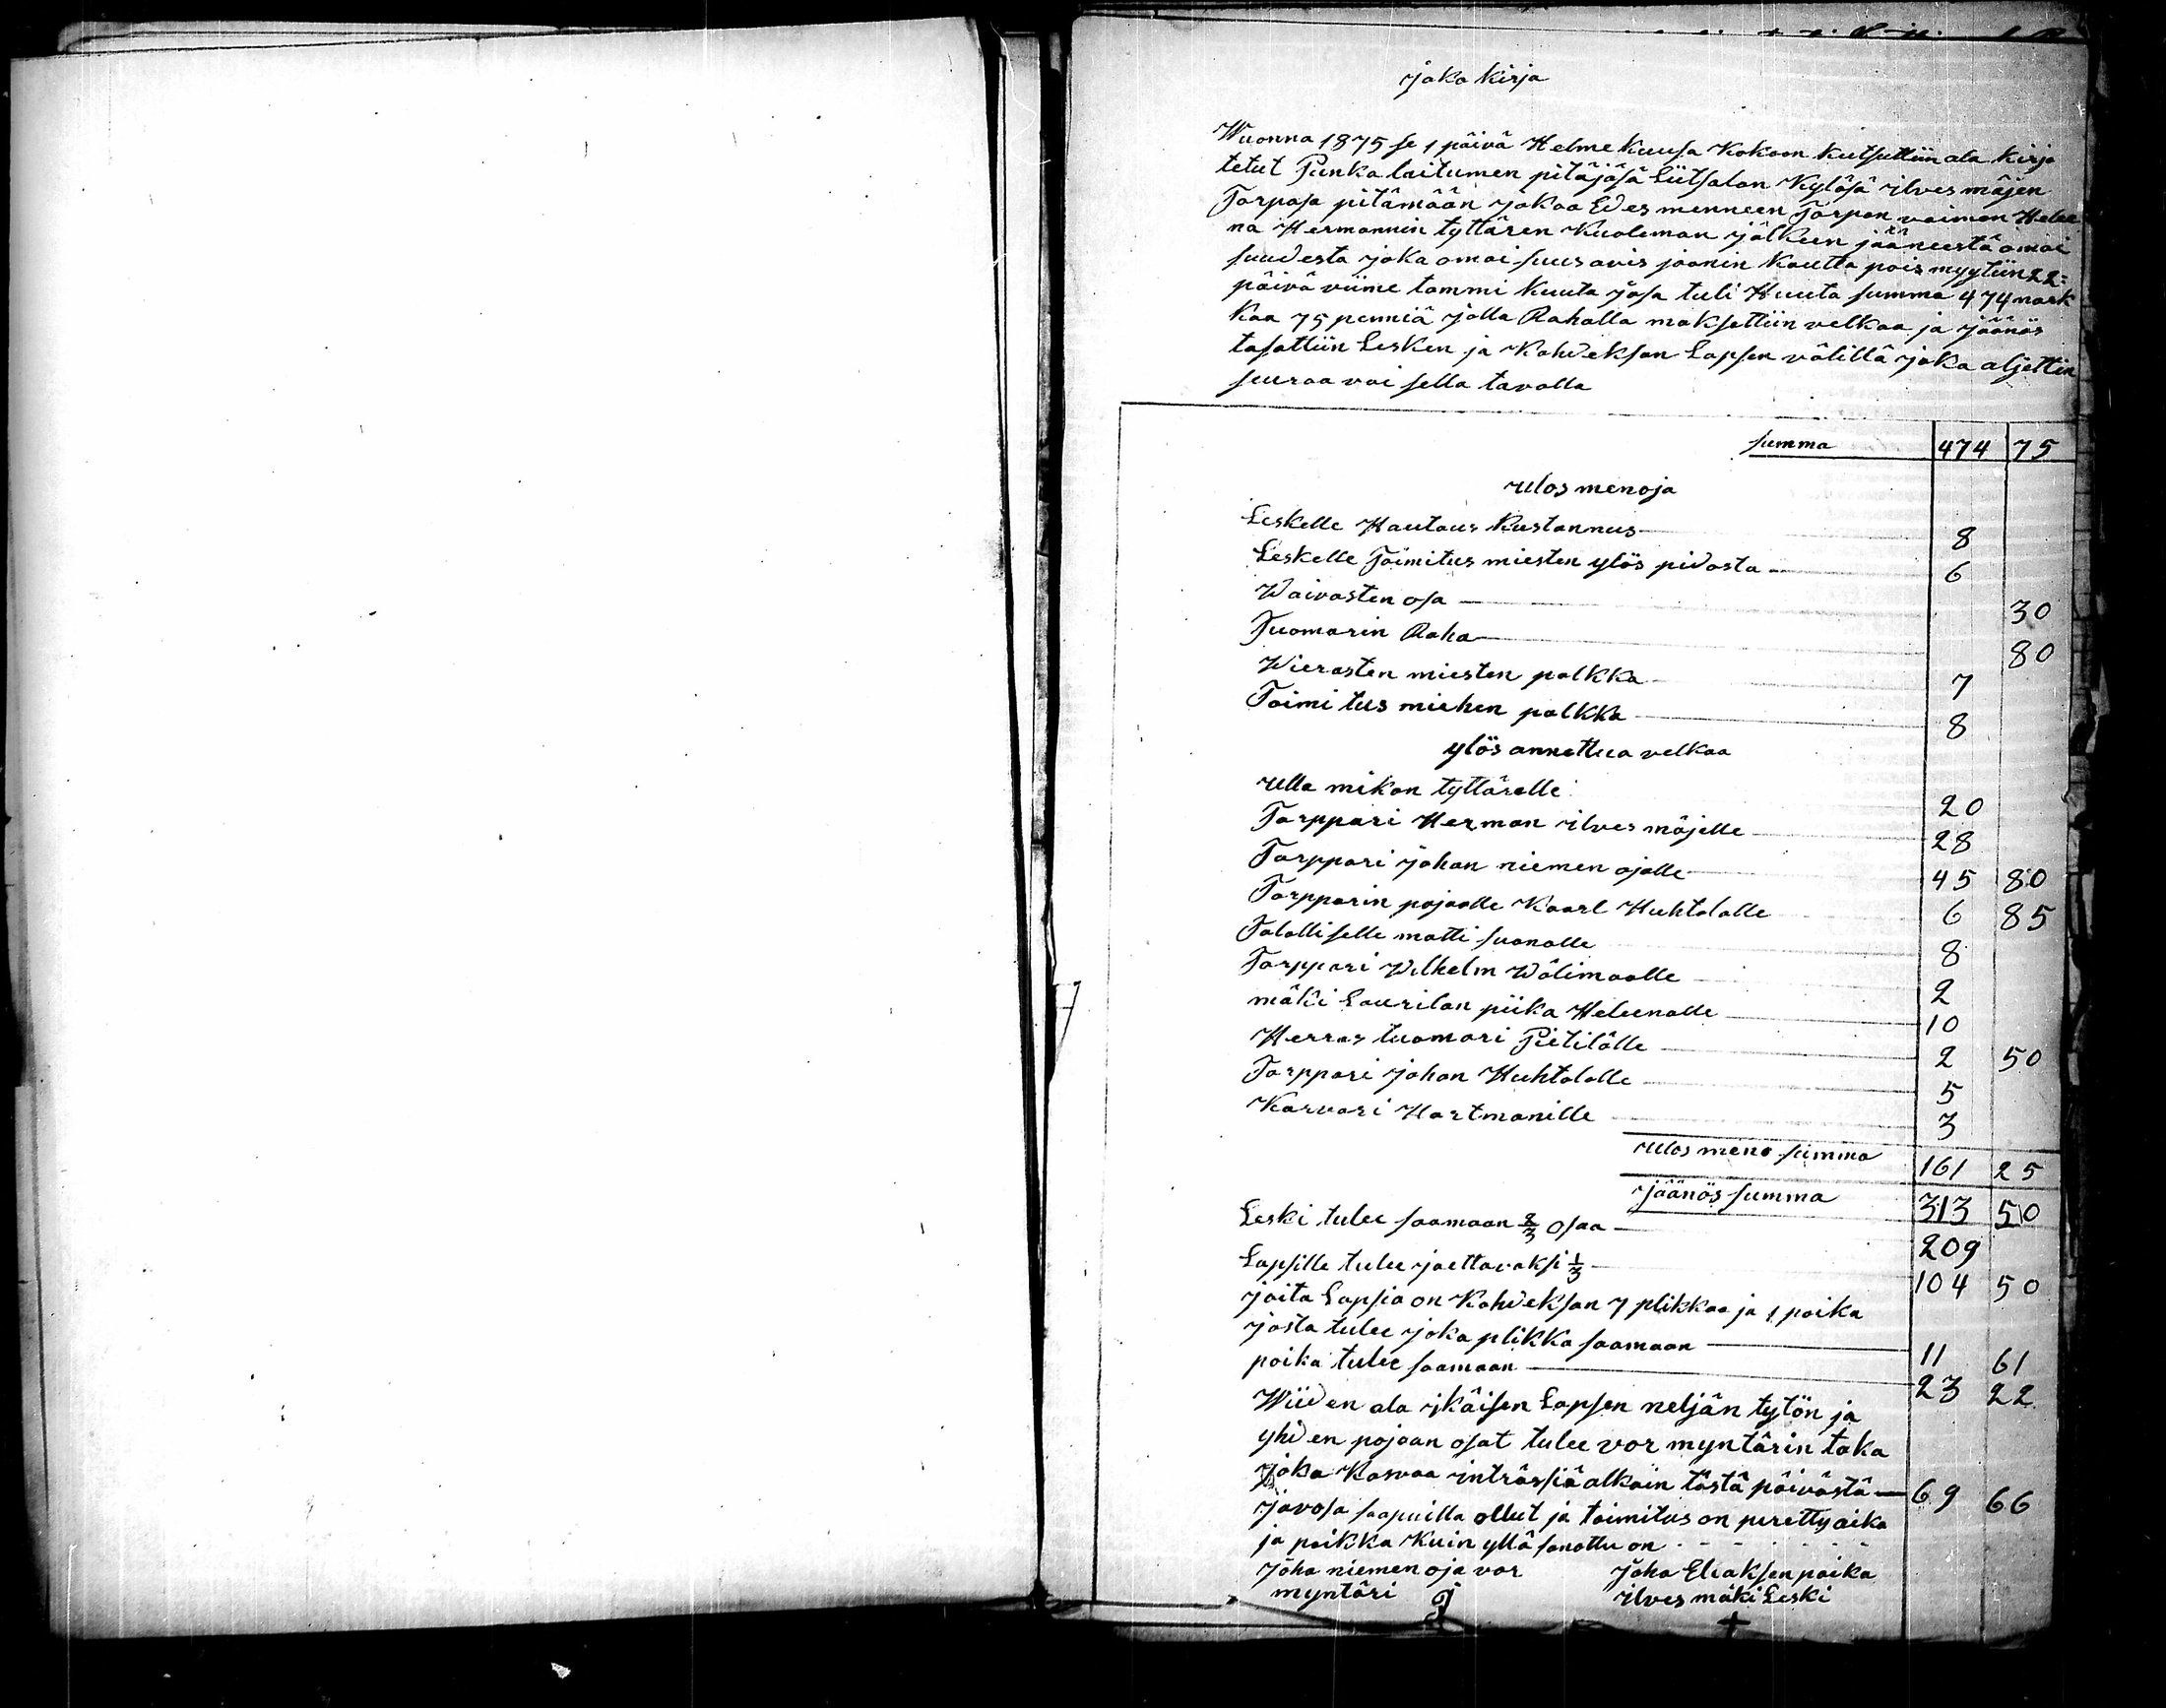 jako kirja
Wuonna 1875 se 1 päivä Helme kuusa kokoon kutsuttiin ala kirjo
tetut Punkalaitumen pitäjäsä Liitsalan Kyläsä ilves mäjen
Torpasa pitämään jakoa Edes menneen Torpan vaimon Helee
na Hermannin tyttären Kuoleman jälkeen jääneestä omai
suudesta joka omai suus avis joonin kautta pois myytiin 22:
päivä viime tammi kuuta josa tuli Huuto summa 474 mark
kaa 75 penniä jolla Rahalla maksettiin velkaa ja jäänös
tasattiin Lesken ja Kahdeksan Lapsen välillä joka aljettin
seuraa vai sella tavalla
summa 474 75
ulos menoja
Leskelle Hautaus kustannus 8
Leskelle Toimitus miesten ylös pidosta 6
Waivasten osa 30
Tuomarin Raha 80
Wierasten miesten palkka 7
Toimi tus miehen palkka 8
ylös annettua velkaa
ulla mikon tyttärelle 20
Torppari Herman ilves mäjelle 28
Torppari johan niemen ojalle 45 80
Torpparin pojaalle Kaarl Huhtalalle 6 85
Talolliselle matti suonalle 8
Torppari Wilhelm Wälimaalle 2
mäki Laurilan piika Heleenalle 10
Herras tuomari Pietilälle 2 50
Torppari johan Huhtalalle 5
Karvari Hartmanille 3
ulos meno summa 161 25
jäänös summa 313 50
Leski tulee saamaan 2/3 osaa 209
Lapsille tulee jaettavaksi 1/3 104 50
joita Lapsia on Kahdeksan 7 plikkaa ja 1 poika
josta tulee joka plikka saamaan 11 61
poika tulee saamaan 23 22
Wiiden ala ikäisen Lapsen neljän tytön ja
yhden pojaan osat tulee vor myntärin taka
joka Kasvaa inträssiä alkain tästä päivästä 69 66
javosa saapuilla ollut ja toimitus on peretty aika
ja paikka kuin yllä sanottu on
joha niemen oja vor joha Eliaksen poika
myntäri ilves mäki Leski